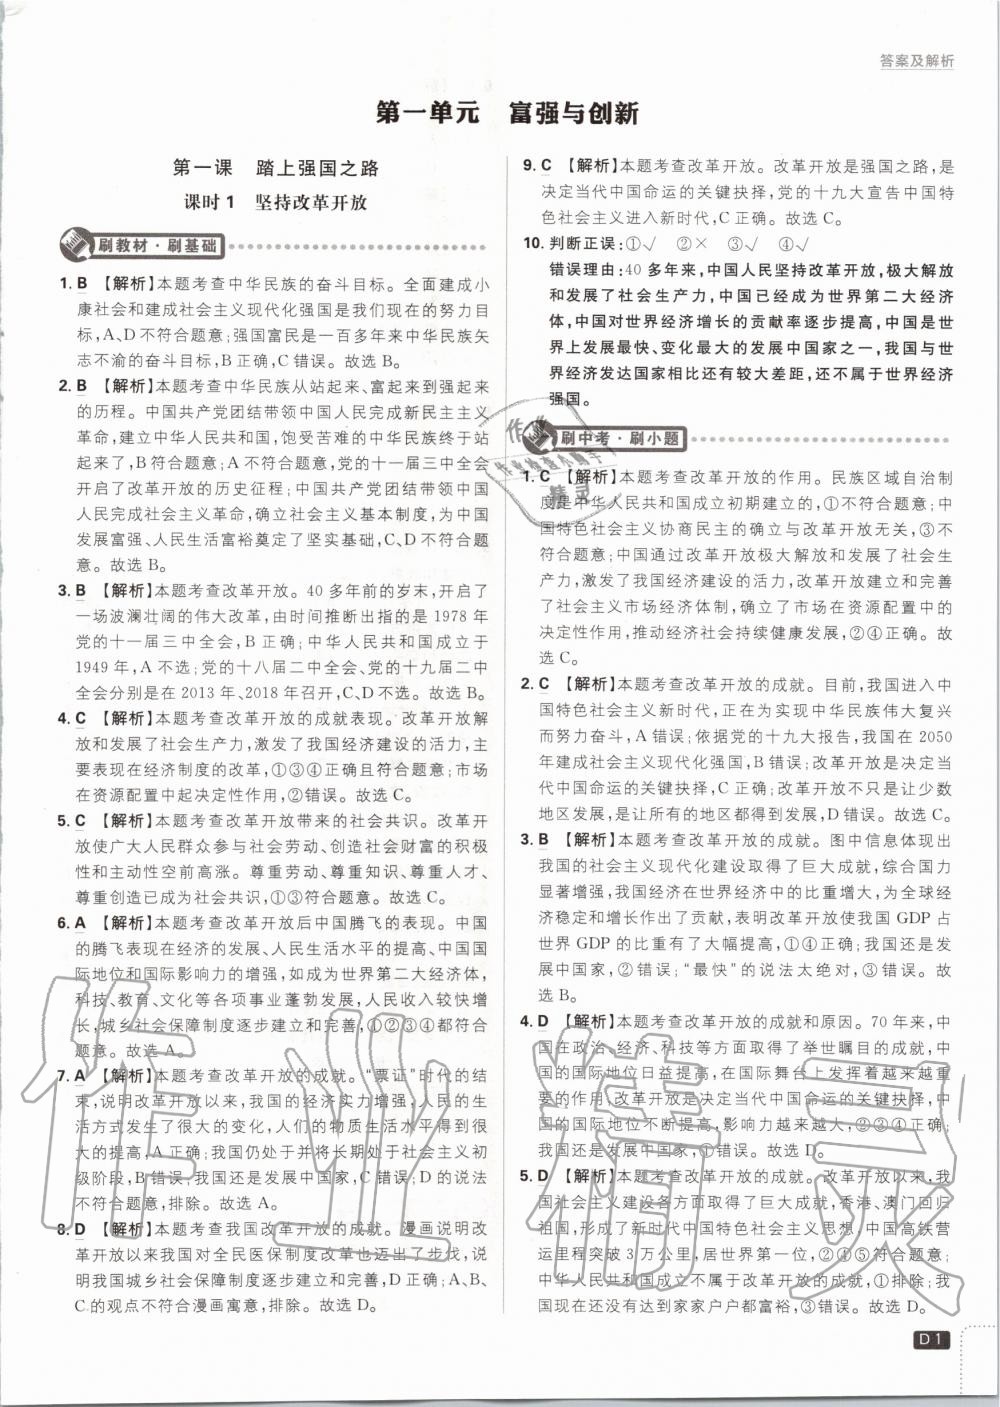 答案及解析
第一单元　富强与创新
第一课　踏上强国之路
课时1　坚持改革开放
刷教材·刷基础
1. B 【解析】本题考查中华民族的奋斗目标。全面建成小
康社会和建成社会主义现代化强国是我们现在的努力目
标,A、D不符合题意;强国富民是一百多年来中华民族矢
志不渝的奋斗目标,B正确,C错误。故选B。
2. B 【解析】本题考查中华民族从站起来、富起来到强起来
的历程。中国共产党团结带领中国人民完成新民主主义
革命,建立中华人民共和国,饱受苦难的中华民族终于站
起来了,B符合题意;中国共产党团结带领中国人民
开启了改革开放的历史征程;中国共产党团结带领中国人
民完成社会主义革命,确立社会主义基本制度,为中国
发展富强、人民生活富裕奠定了坚实基础,C、D不符合题
意。故选B。
3. B 【解析】本题考查改革开放。40多年前的岁末,开启了
一场波澜壮阔的伟大改革,由时间推断出指的是1978年
党的十一届三中全会,B正确;中华人民共和国成立于
1949年,A不选;党的十八届二中全会、党的十九届二中
全会分别是在2013年、2018年召开,C、D不选。故选B。
4. C 【解析】本题考查改革开放的成就表现。改革开放解
放和发展了社会生产力,激发了我国经济建设的活力,主
要表现在经济制度的改革,①③④正确且符合题意;市场
在资源配置中起决定性作用,②错误。故选C。
5. C 【解析】本题考查改革开放带来的社会共识。改革开
放使广大人民群众参与社会劳动、创造社会财富的积极
性和主动性空前高涨。尊重劳动、尊重知识、尊重人才、
尊重创造已成为社会共识,①③符合题意。故选C。
6. A 【解析】本题考查改革开放后中国腾飞的表现。中国
的腾飞表现在经济的发展、人民生活水平的提高、中国国
际地位和国际影响力的增强,如成为世界第二大经济体,
科技、教育、文化等各项事业蓬勃发展,人民收入较快增
长,城乡社会保障制度逐步建立和完善,①②③④都符合
题意。故选A。
7. A 【解析】本题考查改革开放的成就。“票证”时代的结
束,说明改革开放以来,我国的经济实力增强,人民的生
活方式发生了很大的变化,人们的物质生活水平得到很
大的提高;我国仍处于并将长期处于社会主义初
级阶段,B错误;我国是发展中国家,C错误;D的说法
不符合题意,排除。故选A。
8. D 【解析】本题考查我国改革开放的成就。漫画说明改
革开放以来我国对全民医保制度改革也迈出了步伐,说
明我国城乡社会保障制度逐步建立和完善,D正确;A、B、
C的观点不符合漫画寓意,排除。故选D。
9. C 【解析】本题考查改革开放。改革开放是强国之路,是
决定当代中国命运的关键抉择,党的十九大宣告中国特
色社会主义进入新时代,C正确。故选C。
10. 判断正误:①√　②×　③√　④√
错误理由:40多年来,中国人民坚持改革开放,极大解放
和发展了社会生产力,中国已经成为世界第二大经济
体,中国对世界经济增长的贡献率逐步提高,中国是世
界上发展最快、变化最大的发展中国家之一,我国与世
界经济发达国家相比还有较大差距,还不属于世界经济
强国。
刷中考·刷小题
1. C 【解析】本题考查改革开放的作用。民族区域自治制
度是中华人民共和国成立初期建立的,①不符合题意;中
国特色社会主义协商民主的确立与改革开放无关,③不
符合题意;中国通过改革开放极大解放和发展了社会生
产力,激发了我国经济建设的活力,改革开放建立和完善
了社会主义市场经济体制,确立了市场在资源配置中的
决定性作用,推动经济社会持续健康发展,②④正确。故
选C。
2. C 【解析】本题考查改革开放的成就。目前,我国进入中
国特色社会主义新时代,正在为实现中华民族伟大复兴
而努力奋斗,A错误;依据党的十九大报告,我国在2050
年建成社会主义现代化强国,B错误;改革开放是决定当
代中国命运的关键抉择,C正确;改革开放不只是让少数
地区发展,是让所有的地区都得到发展,D错误。故选C。
3. B 【解析】本题考查改革开放的成就。图中信息体现出
我国的社会主义现代化建设取得了巨大成就,综合国力
显著增强,我国经济在世界经济中的比重增大,为全球经
济稳定和增长作出了贡献,表明改革开放使我国GDP占
世界GDP的比重有了大幅提高,①④正确;我国还是发
展中国家,②错误;“最快”的说法太绝对,③错误。故
选B。
4. D 【解析】本题考查改革开放的成就和原因。70年来,中
国在政治、经济、科技等方面取得了举世瞩目的成就,中
国的国际地位日益提高,在国际舞台上发挥着越来越重
要的作用,改革开放是决定当代中国命运的关键抉择,中
国的国际地位不断提高,影响力越来越大,②③④正确;
我国还是发展中国家,①错误。故选D。
5. D 【解析】本题考查改革开放的成就。改革开放以来,我
国社会主义建设各方面取得了巨大成就,香港、澳门回归
祖国,形成了新时代中国特色社会主义思想,中国高铁营
运里程突破3万公里,居世界第一位,②④⑤符合题意;
中华人民共和国成立不属于改革开放的成就,①排除;我
国现在还没有达到家家户户都富裕,③排除。故选D。
D1